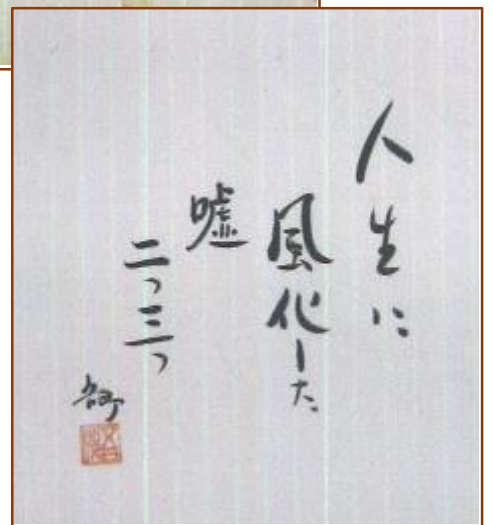 人生に
風化した
嘘
二つ三つ